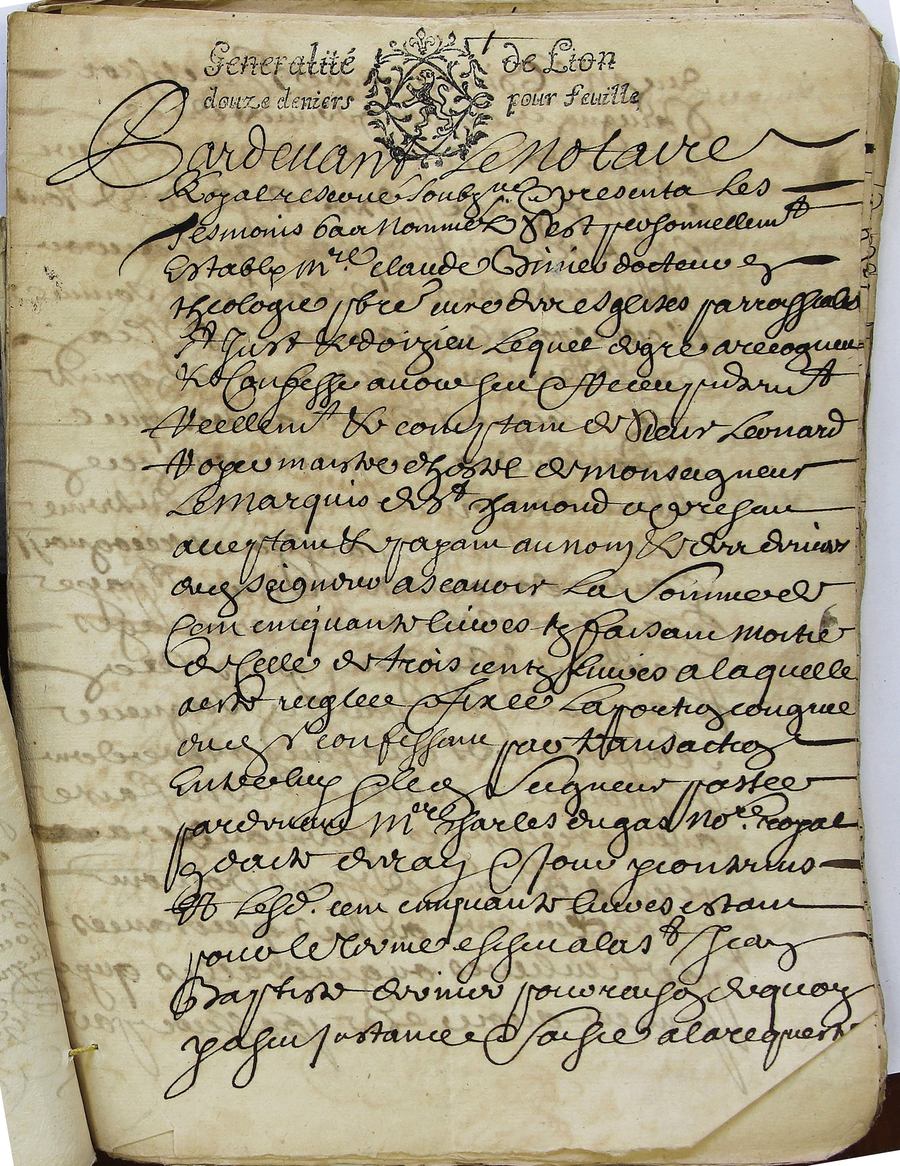 Generalité de Lion
douze deniers pour feuille
Pardevant Le Notaire
Royal reserve soubzne & presenta Les
Tesmoins bas Nommes S'est personnellemt
Estably Mre Claude
theologie pbre cure des esglises parrochiales
St Just & doizieu Lequel de gre a recogneu
& Confesse avoir heu & receu
reellemt & comptant de Sieur Leonard
maistre d'hostel de Monseigneur
Le Marquis de St Chamond
acceptant & payant au nom & des deniers
dud seigneur ascavoir La Somme de
Cent cinquante livres faisant moitie
de Celle de trois cents livres a laquelle
a este reiglee & fixee La portion congrue
dud Sr confessant par transaction
Entre luy & led Seigneur passee
pardevant Mre Charles dugas Nore Royal
&
Et Lesd. cent cinquante livres estant
pour le terme escheu a la St Jean
Baptiste dernier pour raison de quoy
y a heu Instance & Saisie a la requeste